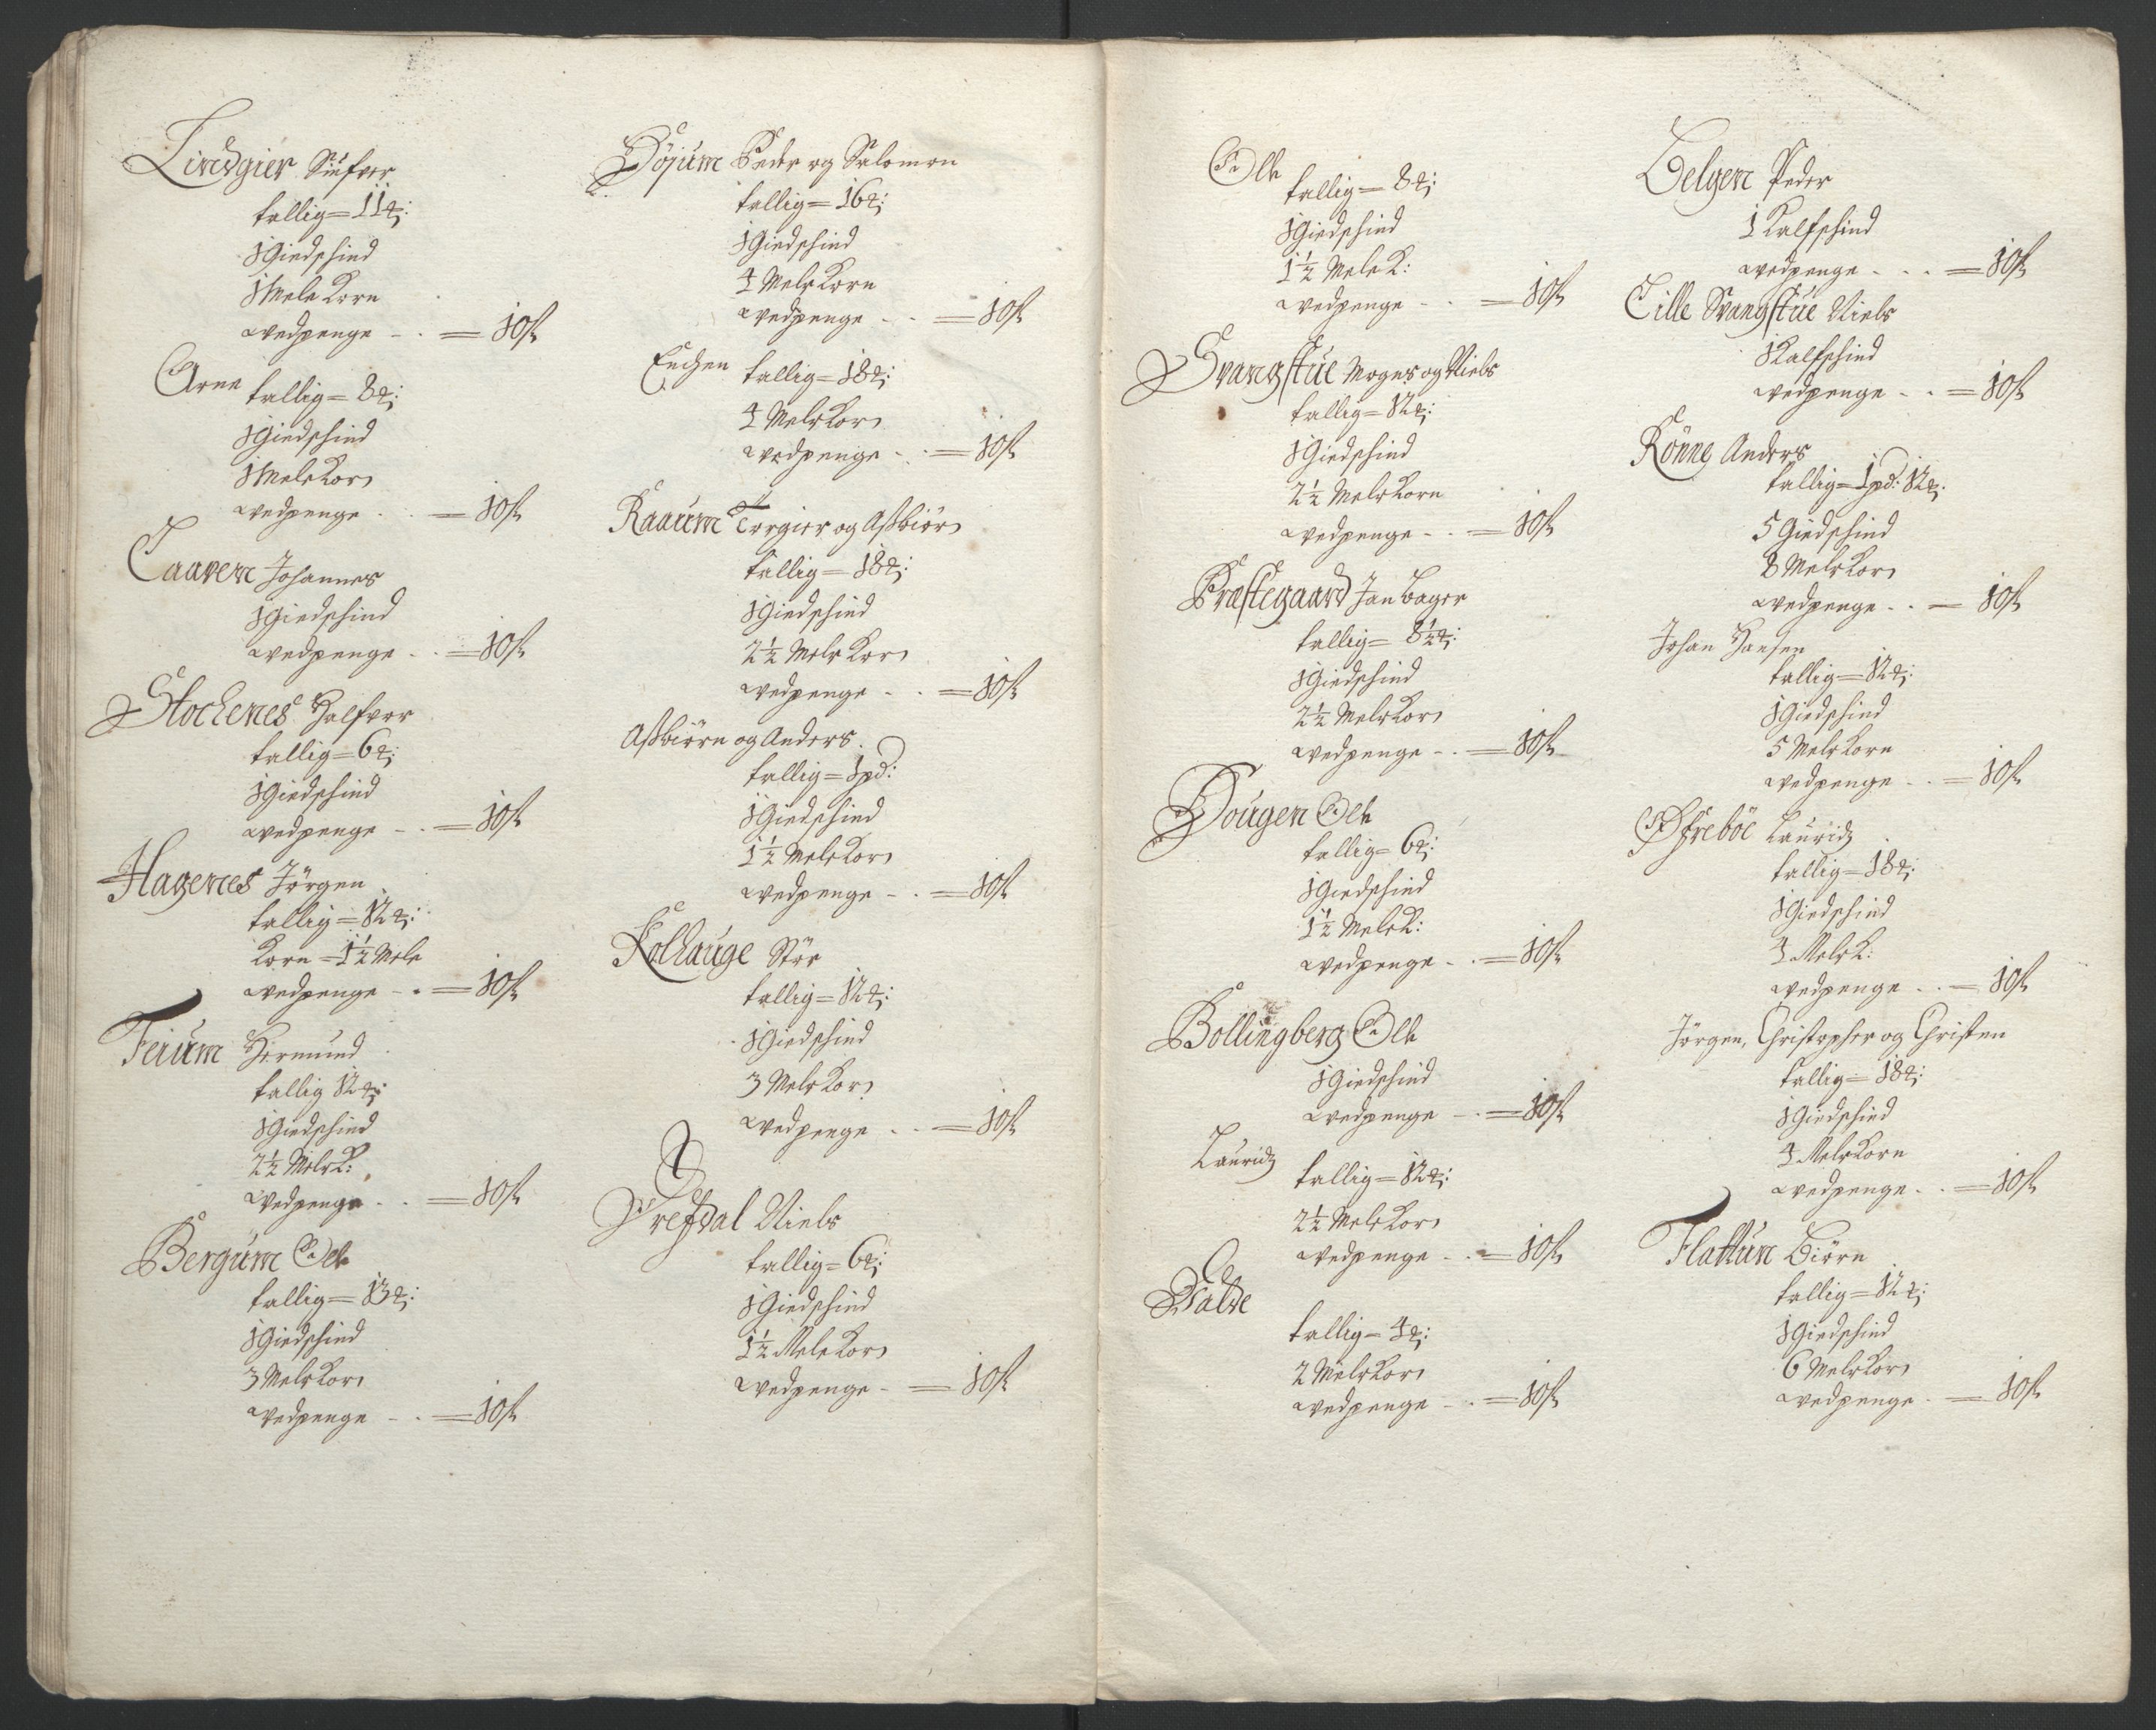 Lindgier Siufver
tallig = 11 ℔:
1 Giedschind
1 Mele Korn
wedpenge - . = 10 ſk
Arne tallig = 8 ℔:
1 Giedschind
1 Mele Korn
wedpenge . = 10 ſk
Taaven Johannes
1 Giedschind
wedpenge - . = 10 ſk
Stochenes Halfvor
tallig = 6 ℔:
1 Giedschind
wedpenge - . = 10 ſk
Hagenes Jörgen
tallig = 12 ℔:
Korn = 1½ Mele
wedpenge - . = 10 ſk
Feium Hermund
tallig 12 ℔:
1 Giedschind
2½ Mele K:
wedpenge . . = 10 ſk
Bergum Ole
tallig = 13 ℔:
1 Giedschind
3 Mele Korn
wedpenge - . = 10 ſk
Böjum Peder og Salomon
tallig = 16 ℔:
1 Giedschind
4 Mele Korn
wedpenge - . = 10 ſk
Enchen tallig = 18 ℔:
4 Mele Korn
wedpenge - . = 10 ſk
Raaum Torgier og Aßbiörn
tallig = 18 ℔:
1 Giedschind
2½ Mele Korn
wedpenge - . = 10 ſk
Aßbiörn og Anders.
tallig = 1 pd:
1 Giedschind
1½ Mele Korn
wedpenge - . = 10 ſk
Kolhauge Stör
tallig = 12 ℔:
1 Giedschind
3 Mele Korn
wedpenge . - = 10 ſk
Drefdal Niels
tallig = 6 ℔:
1 Giedschind
1½ Mele Korn
wedpenge - = 10 ſk
Ole
tallig = 8 ℔:
1 Giedschind
1½ Mele K:
wedpenge - . = 10 ſk
Svangstue Mogns og Niels
tallig = 12 ℔:
1 Giedschind
2½ Mele Korn
wedpenge - . = 10 ſk
Præstegaard Jan Bager
tallig = 8½ ℔:
1 Giedschind
2½ Mele Korn
wedpenge - . = 10 ſk
Dougen Ole
tallig = 6 ℔:
1 Giedschind
1½ Mele K:
wedpenge - . = 10 ſk
Bollingberg Ole
1 Giedschind
wedpenge - . = 10 ſk
Lauridz
tallig = 12 ℔:
2½ Mele Korn
wedpenge - . = 10 ſk
tallig = 4 ℔:
2 Mele Korn
wedpenge - . = 10 ſk
Helgen Peder
1 Kalfschind
wedpenge - . . = 10 ſk
Lille Svangstue Niels
1 Kalfschind
wedpenge - . = 10 ſk
Rönne Anders
tallig = 1 pd: 12 ℔:
5 Giedschind
8 Mele Korn
wedpenge . . = 10 ſk
Johan Hansen
tallig = 12 ℔:
1 Giedschind
5 Mele Korn
wedpenge - . = 10 ſk
Öfreböe Lauridz
tallig = 18 ℔:
1 Giedschind
4 Mele K:
wedpenge . . = 10 ſk
Jörgen, Christopher og Christen
tallig = 18 ℔:
1 Giedschind
4 Mele Korn
wedpenge . . = 10 ſk
Flattun Biörn
tallig = 12 ℔:
1 Giedschind
6 Mele Korn
wedpenge - = 10 ſk